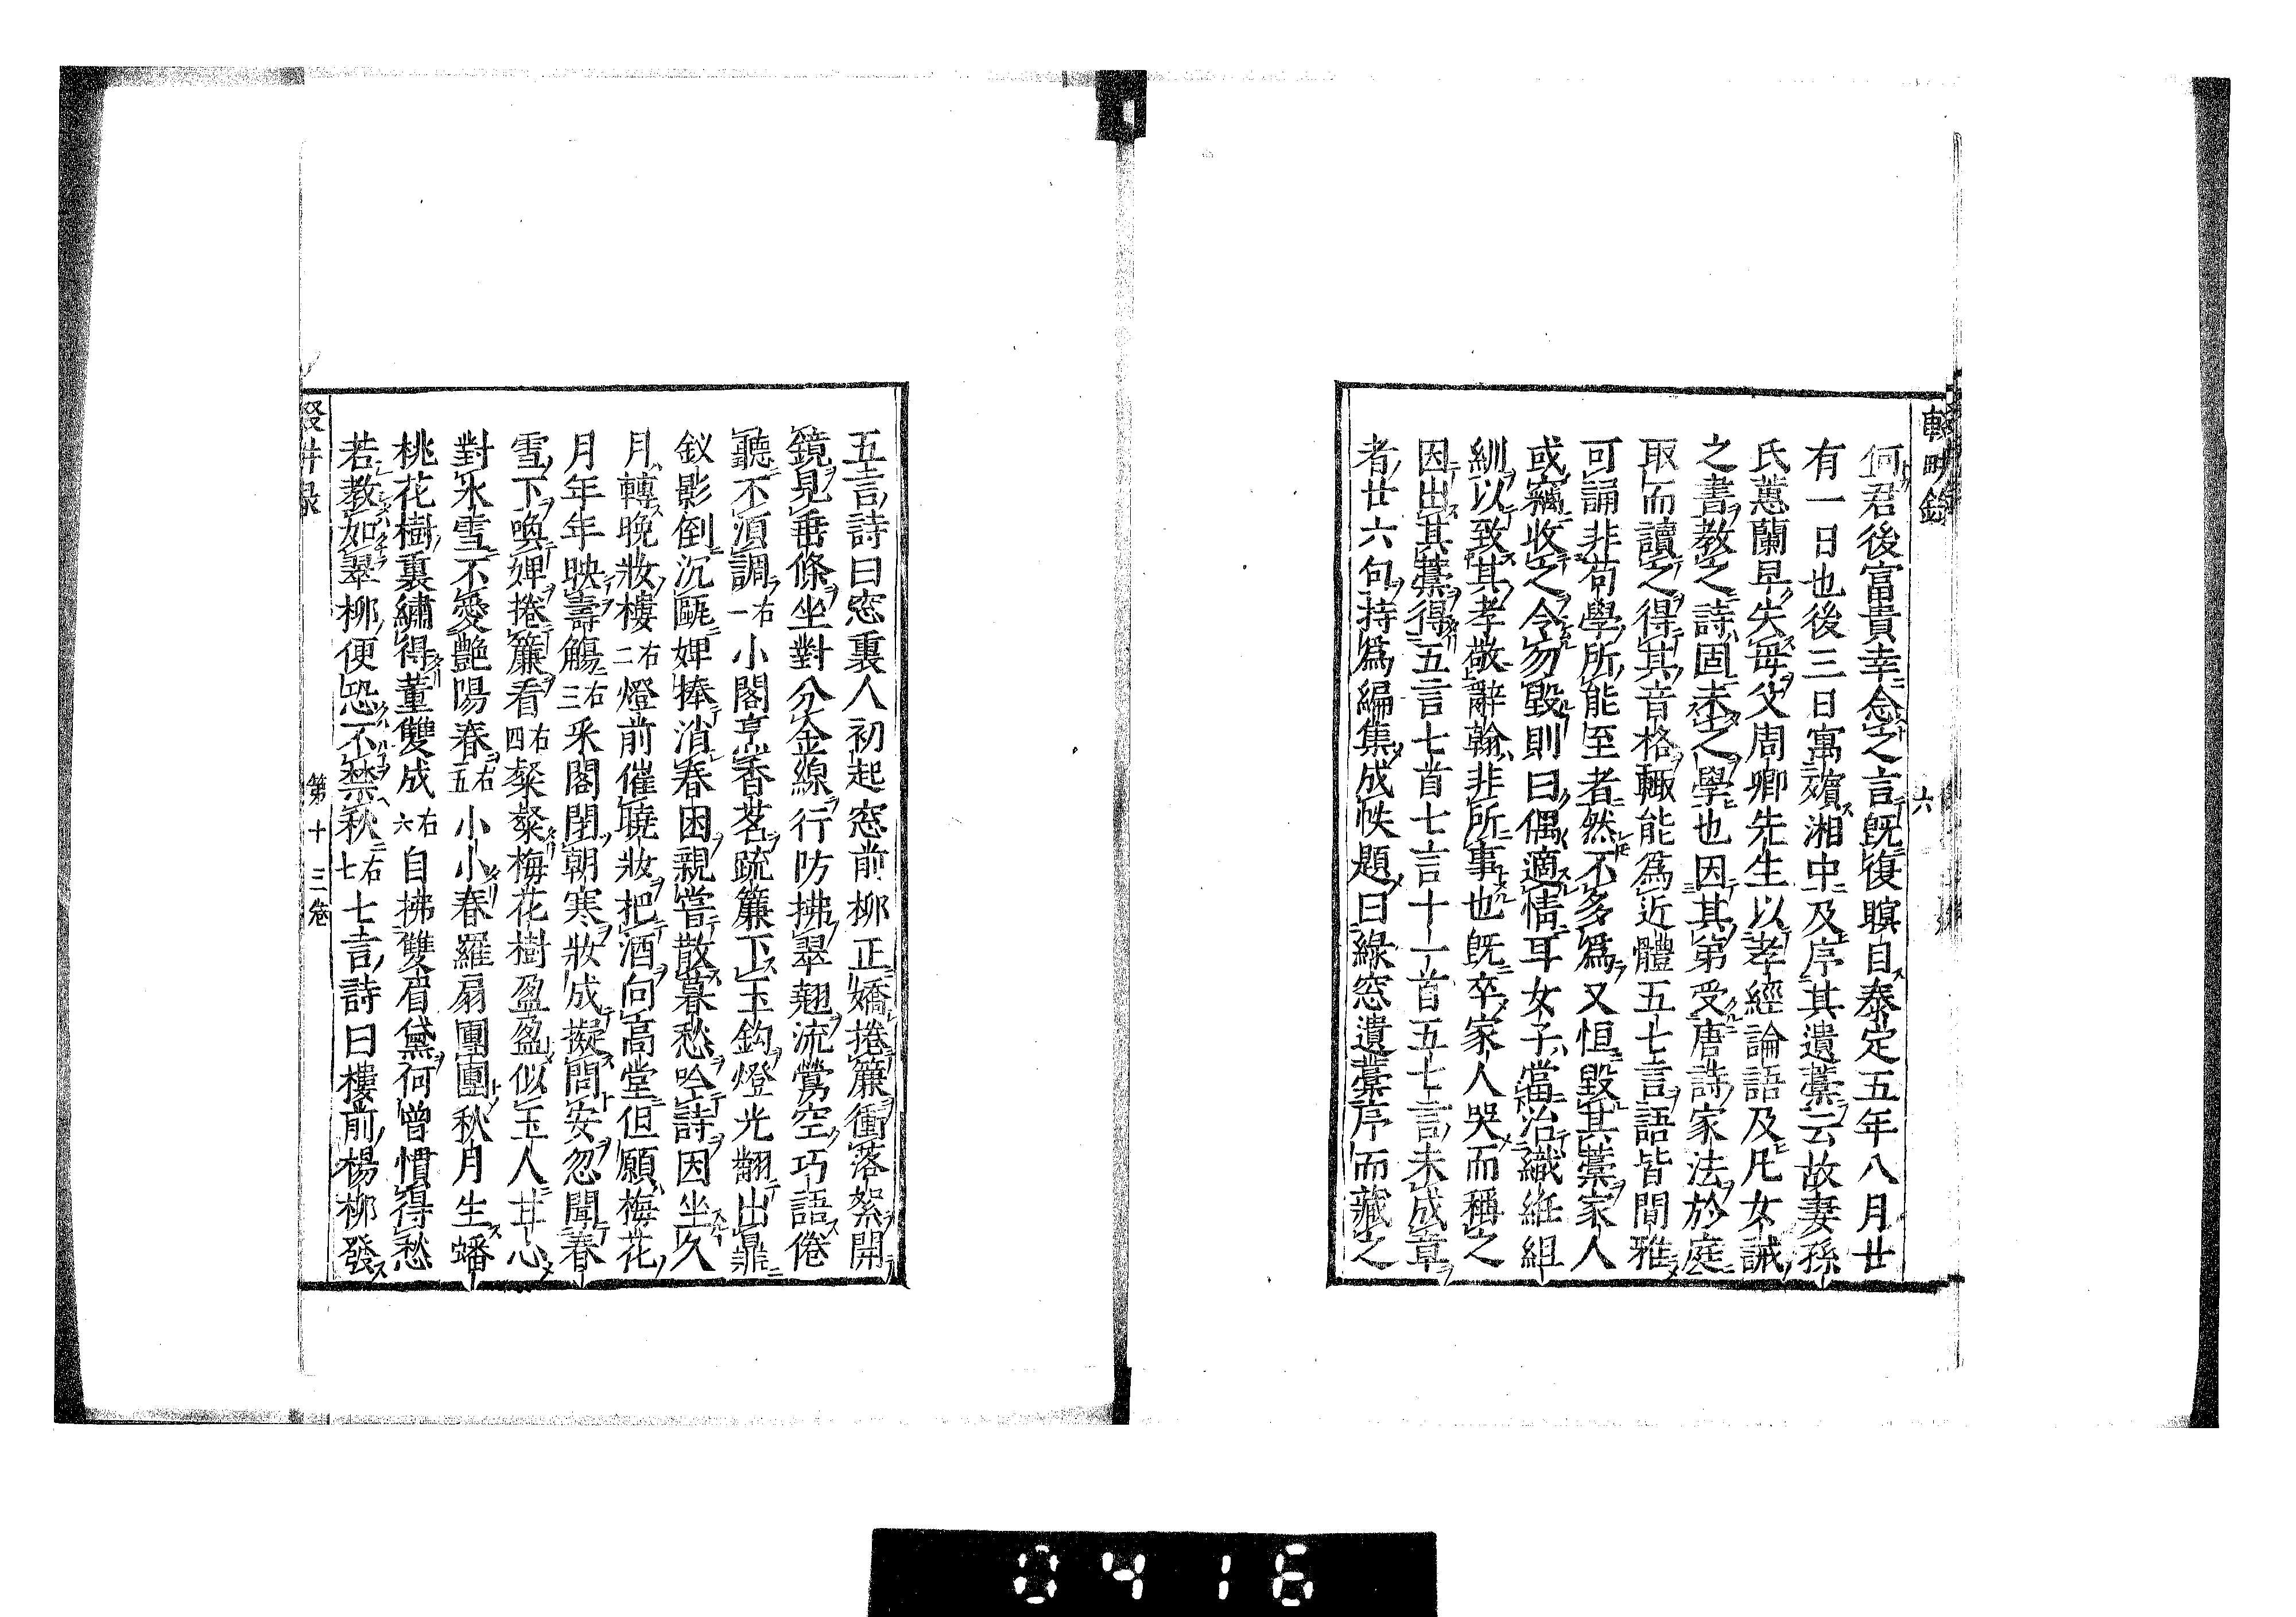 輟畊錄
六
何君後富貴幸念之言既復瞑自泰定五年八月廿
有一日也後三日寓殯湘中及序其遺藁云故妻孫
氏蕙蘭早失母父周卿先生以孝經論語及凡女誡
之書教之詩固未之學也因其弟受唐詩家法於庭
取而讀之得其音格輒能爲近體五七言語皆閒雅
可誦非苟學所能至者然不多爲又恒毀其藁家人
或竊收之令勿毀則曰偶適情耳女子當治織紝組
紃以致其孝敬辭翰非所事也既卒家人哭而稱之
因出其藁得五言七首七言十一首五七言未成章
者廿六句持爲編集成帙題曰綠窓遺藁序而藏之
五言詩曰窓裏人初起窓前柳正嬌捲簾衝落絮開
鏡見垂條坐對分金線行防拂翠翹流鶯空巧語倦
聽不湏調右一小閣烹香茗疏簾下玉鈎燈光翻出鼎
釵影倒沉甌婢捧消春困親嘗散暮愁吟詩因坐久
月轉晚妝樓右二燈前催曉妝把酒向高堂但願梅花
月年年映壽觴右三釆閣閉朝寒妝成擬問安忽聞春
雪下喚婢捲簾看右四粲粲梅花樹盈盈似玉人甘心
對氷雪不愛艷陽春右五小小春羅扇團團秋月生蟠
桃花樹裏繡得董雙成右六自拂雙眉黛何曾慣得愁
若教如翠柳便恐不禁秋右七七言詩曰樓前楊柳發
第十三卷